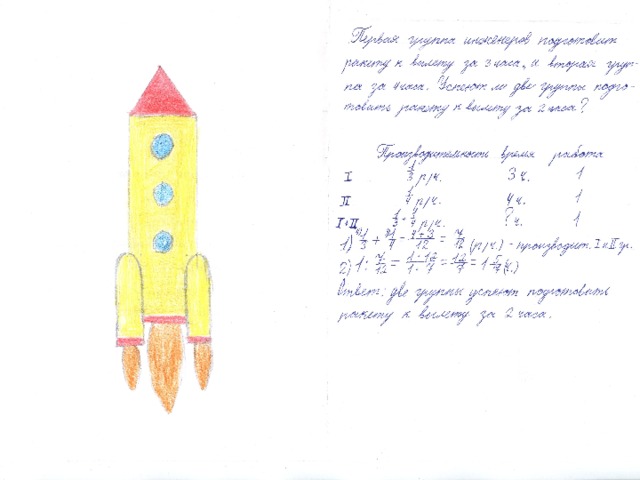 Первая группа инженеров подготовит
ракету к вылету за 3 часа, и вторая груп-
па за 4 часа. Успеют ли две группы подго-
товить ракету к вылету за 2 часа?
Производительность время работа
I 1/3 р/ч. 3 ч. 1
II 1/4 р/ч. 4 ч. 1
I+II 1/3+1/4 р/ч. ? ч. 1
1) 1/3 + 1/4 = 4+3/12 = 7/12 (р/ч.) - производит. I и II гр.
2) 1 : 7/12 = 1·12/1·7 = 12/7 = 1 5/7 (ч.)
Ответ: две группы успеют подготовить
ракету к вылету за 2 часа.